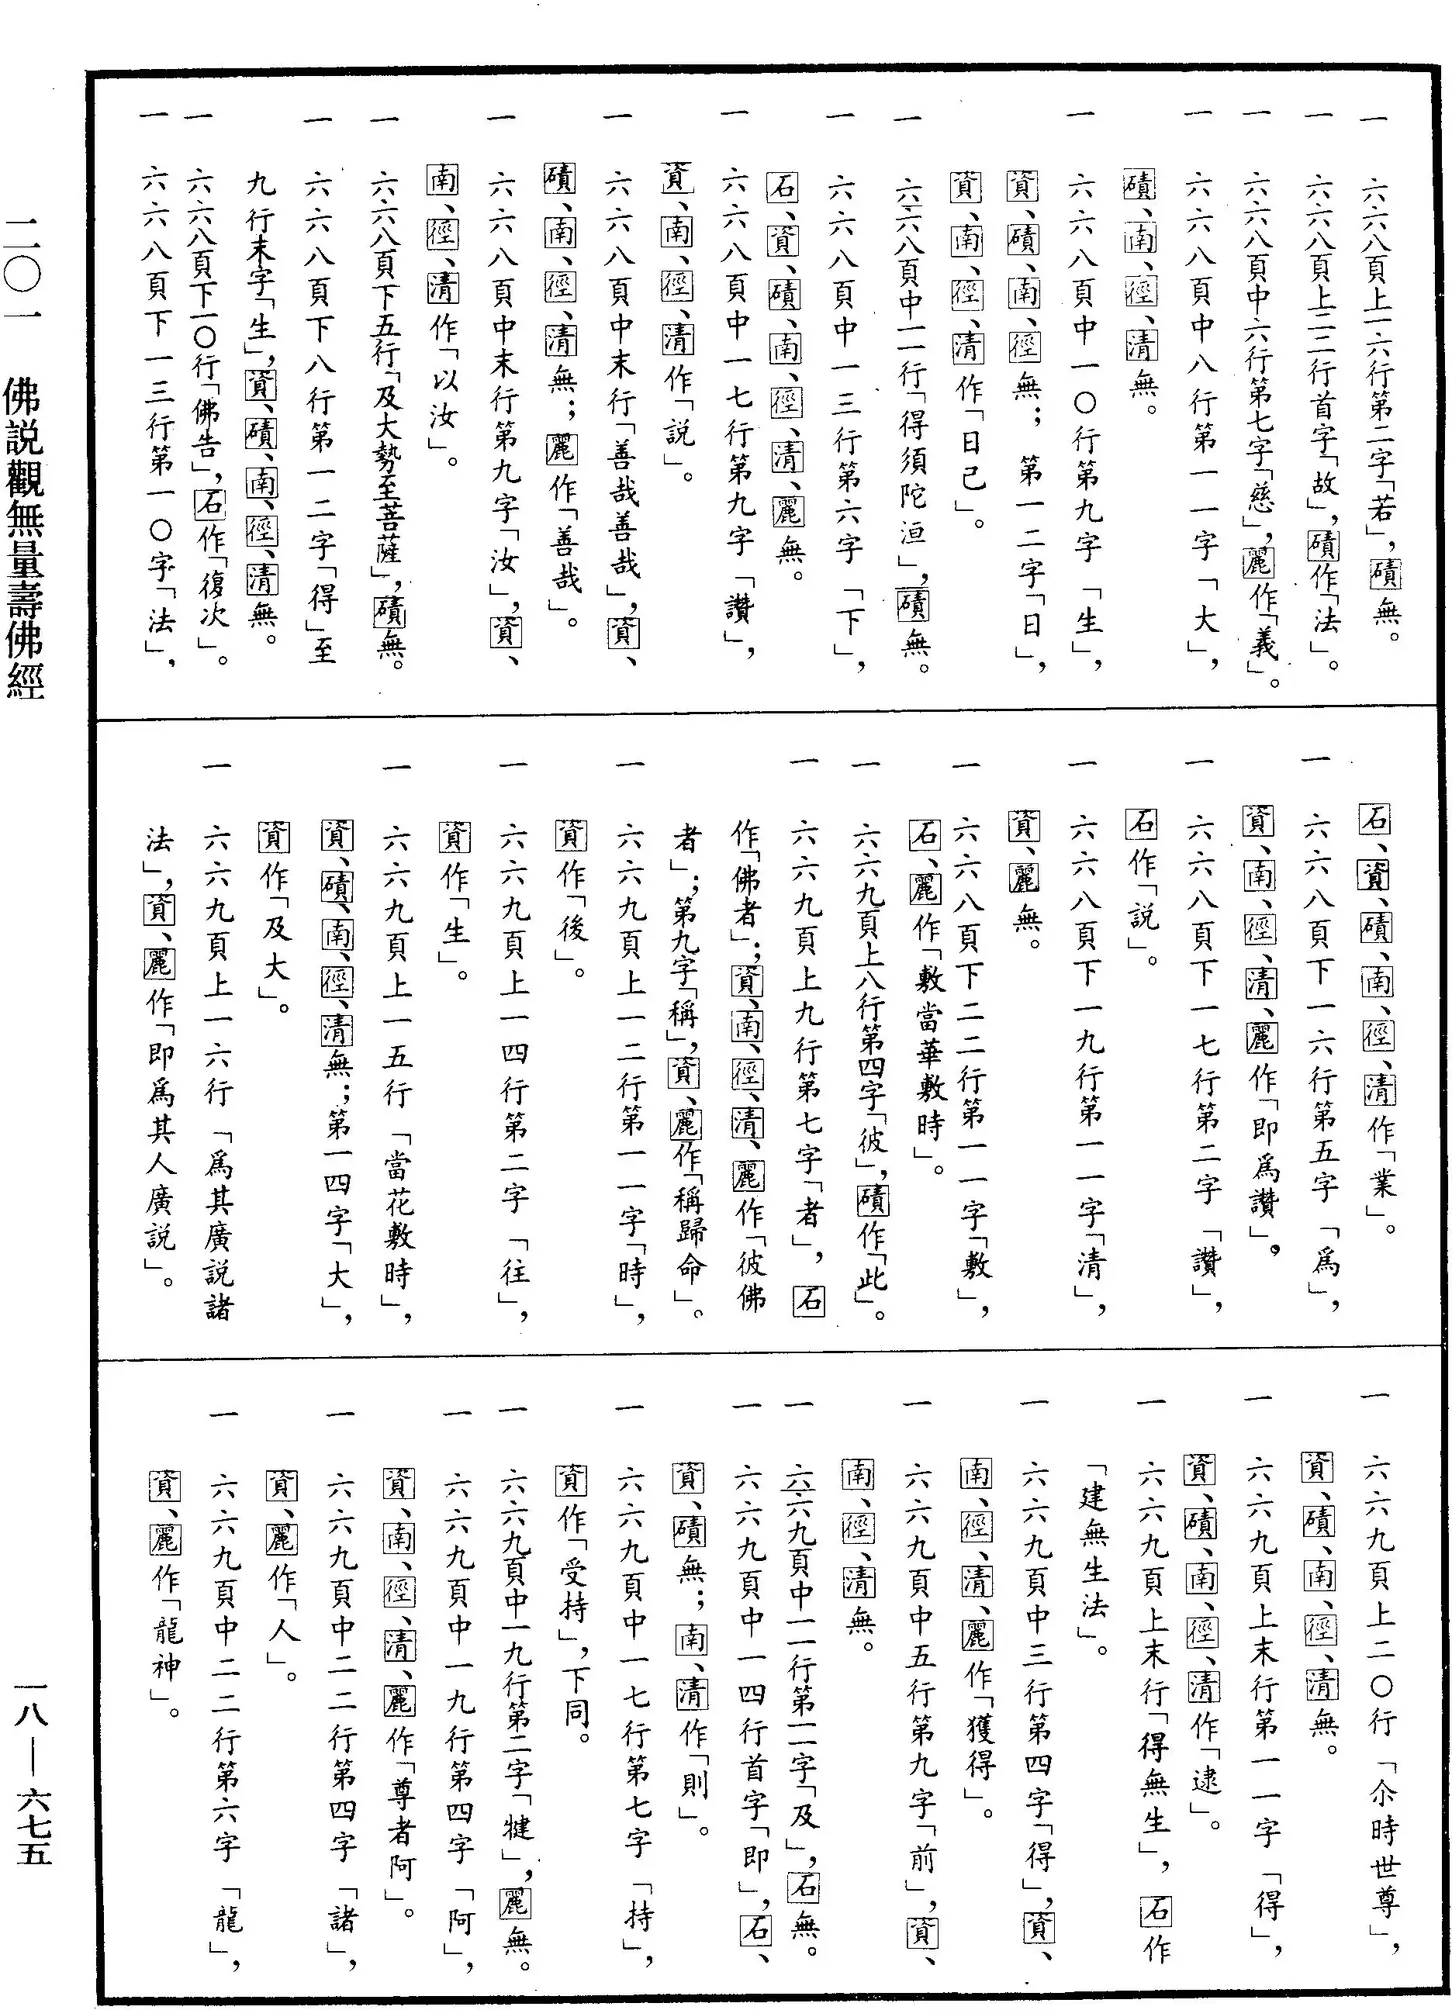 一 六六八頁上一六行第二字「若」，磧無。
一 六六八頁上二二行首字「故」，磧作「法」。
一 六六八頁中六行第七字「慈」，麗作「義」。
一 六六八頁中八行第一一字「大」，
磧、南、徑、清無。
一 六六八頁中一〇行第九字「生」，
資、磧、南、徑無；第一二字「日」，
資、南、徑、清作「日已」。
一 六六八頁中一一行「得須陀洹」，磧無。
一 六六八頁中一三行第六字「下」，
石、資、磧、南、徑、清、麗無。
一 六六八頁中一七行第九字「讚」，
資、南、徑、清作「説」。
一 六六八頁中末行「善哉善哉」，資、
磧、南、徑、清無；麗作「善哉」。
一 六六八頁中末行第九字「汝」，資、
南、徑、清作「以汝」。
一 六六八頁下五行「及大勢至菩薩」，磧無。
一 六六八頁下八行第一二字「得」至
九行末字「生」，資、磧、南、徑、清無。
一 六六八頁下一〇行「佛告」，石作「復次」。
一 六六八頁下一三行第一〇字「法」，
石、資、磧、南、徑、清作「業」。
一 六六八頁下一六行第五字「爲」，
資、南、徑、清、麗作「即爲讚」，
一 六六八頁下一七行第二字「讚」，
石作「説」。
一 六六八頁下一九行第一一字「清」，
資、麗無。
一 六六八頁下二二行第一一字「敷」，
石、麗作「敷當華敷時」。
一 六六九頁上八行第四字「彼」，磧作「此」。
一 六六九頁上九行第七字「者」，石
作「佛者」；資、南、徑、清、麗作「彼佛
者」；第九字「稱」，資、麗作「稱歸命」。
一 六六九頁上一二行第一一字「時」，
資作「後」。
一 六六九頁上一四行第二字「往」，
資作「生」。
一 六六九頁上一五行「當花敷時」，
資、磧、南、徑、清無；第一四字「大」，
資作「及大」。
一 六六九頁上一六行「爲其廣説諸
法」，資、麗作「即爲其人廣説」。
一 六六九頁上二〇行「尒時世尊」，
資、磧、南、徑、清無。
一 六六九頁上末行第一一字「得」，
資、磧、南、徑、清作「逮」。
一 六六九頁上末行「得無生」，石作
「建無生法」。
一 六六九頁中三行第四字「得」，資、
南、徑、清、麗作「獲得」。
一 六六九頁中五行第九字「前」，資、
南、徑、清無。
一 六六九頁中一一行第一一字「及」，石無。
一 六六九頁中一四行首字「即」，石、
資、磧無；南、清作「則」。
一 六六九頁中一七行第七字「持」，
資作「受持」，下同。
一 六六九頁中一九行第二字「犍」，麗無。
一 六六九頁中一九行第四字「阿」，
資、南、徑、清、麗作「尊者阿」。
一 六六九頁中二二行第四字「諸」，
資、麗作「人」。
一 六六九頁中二二行第六字「龍」，
資、麗作「龍神」。
二〇一 佛説觀無量壽佛經
一八—六七五